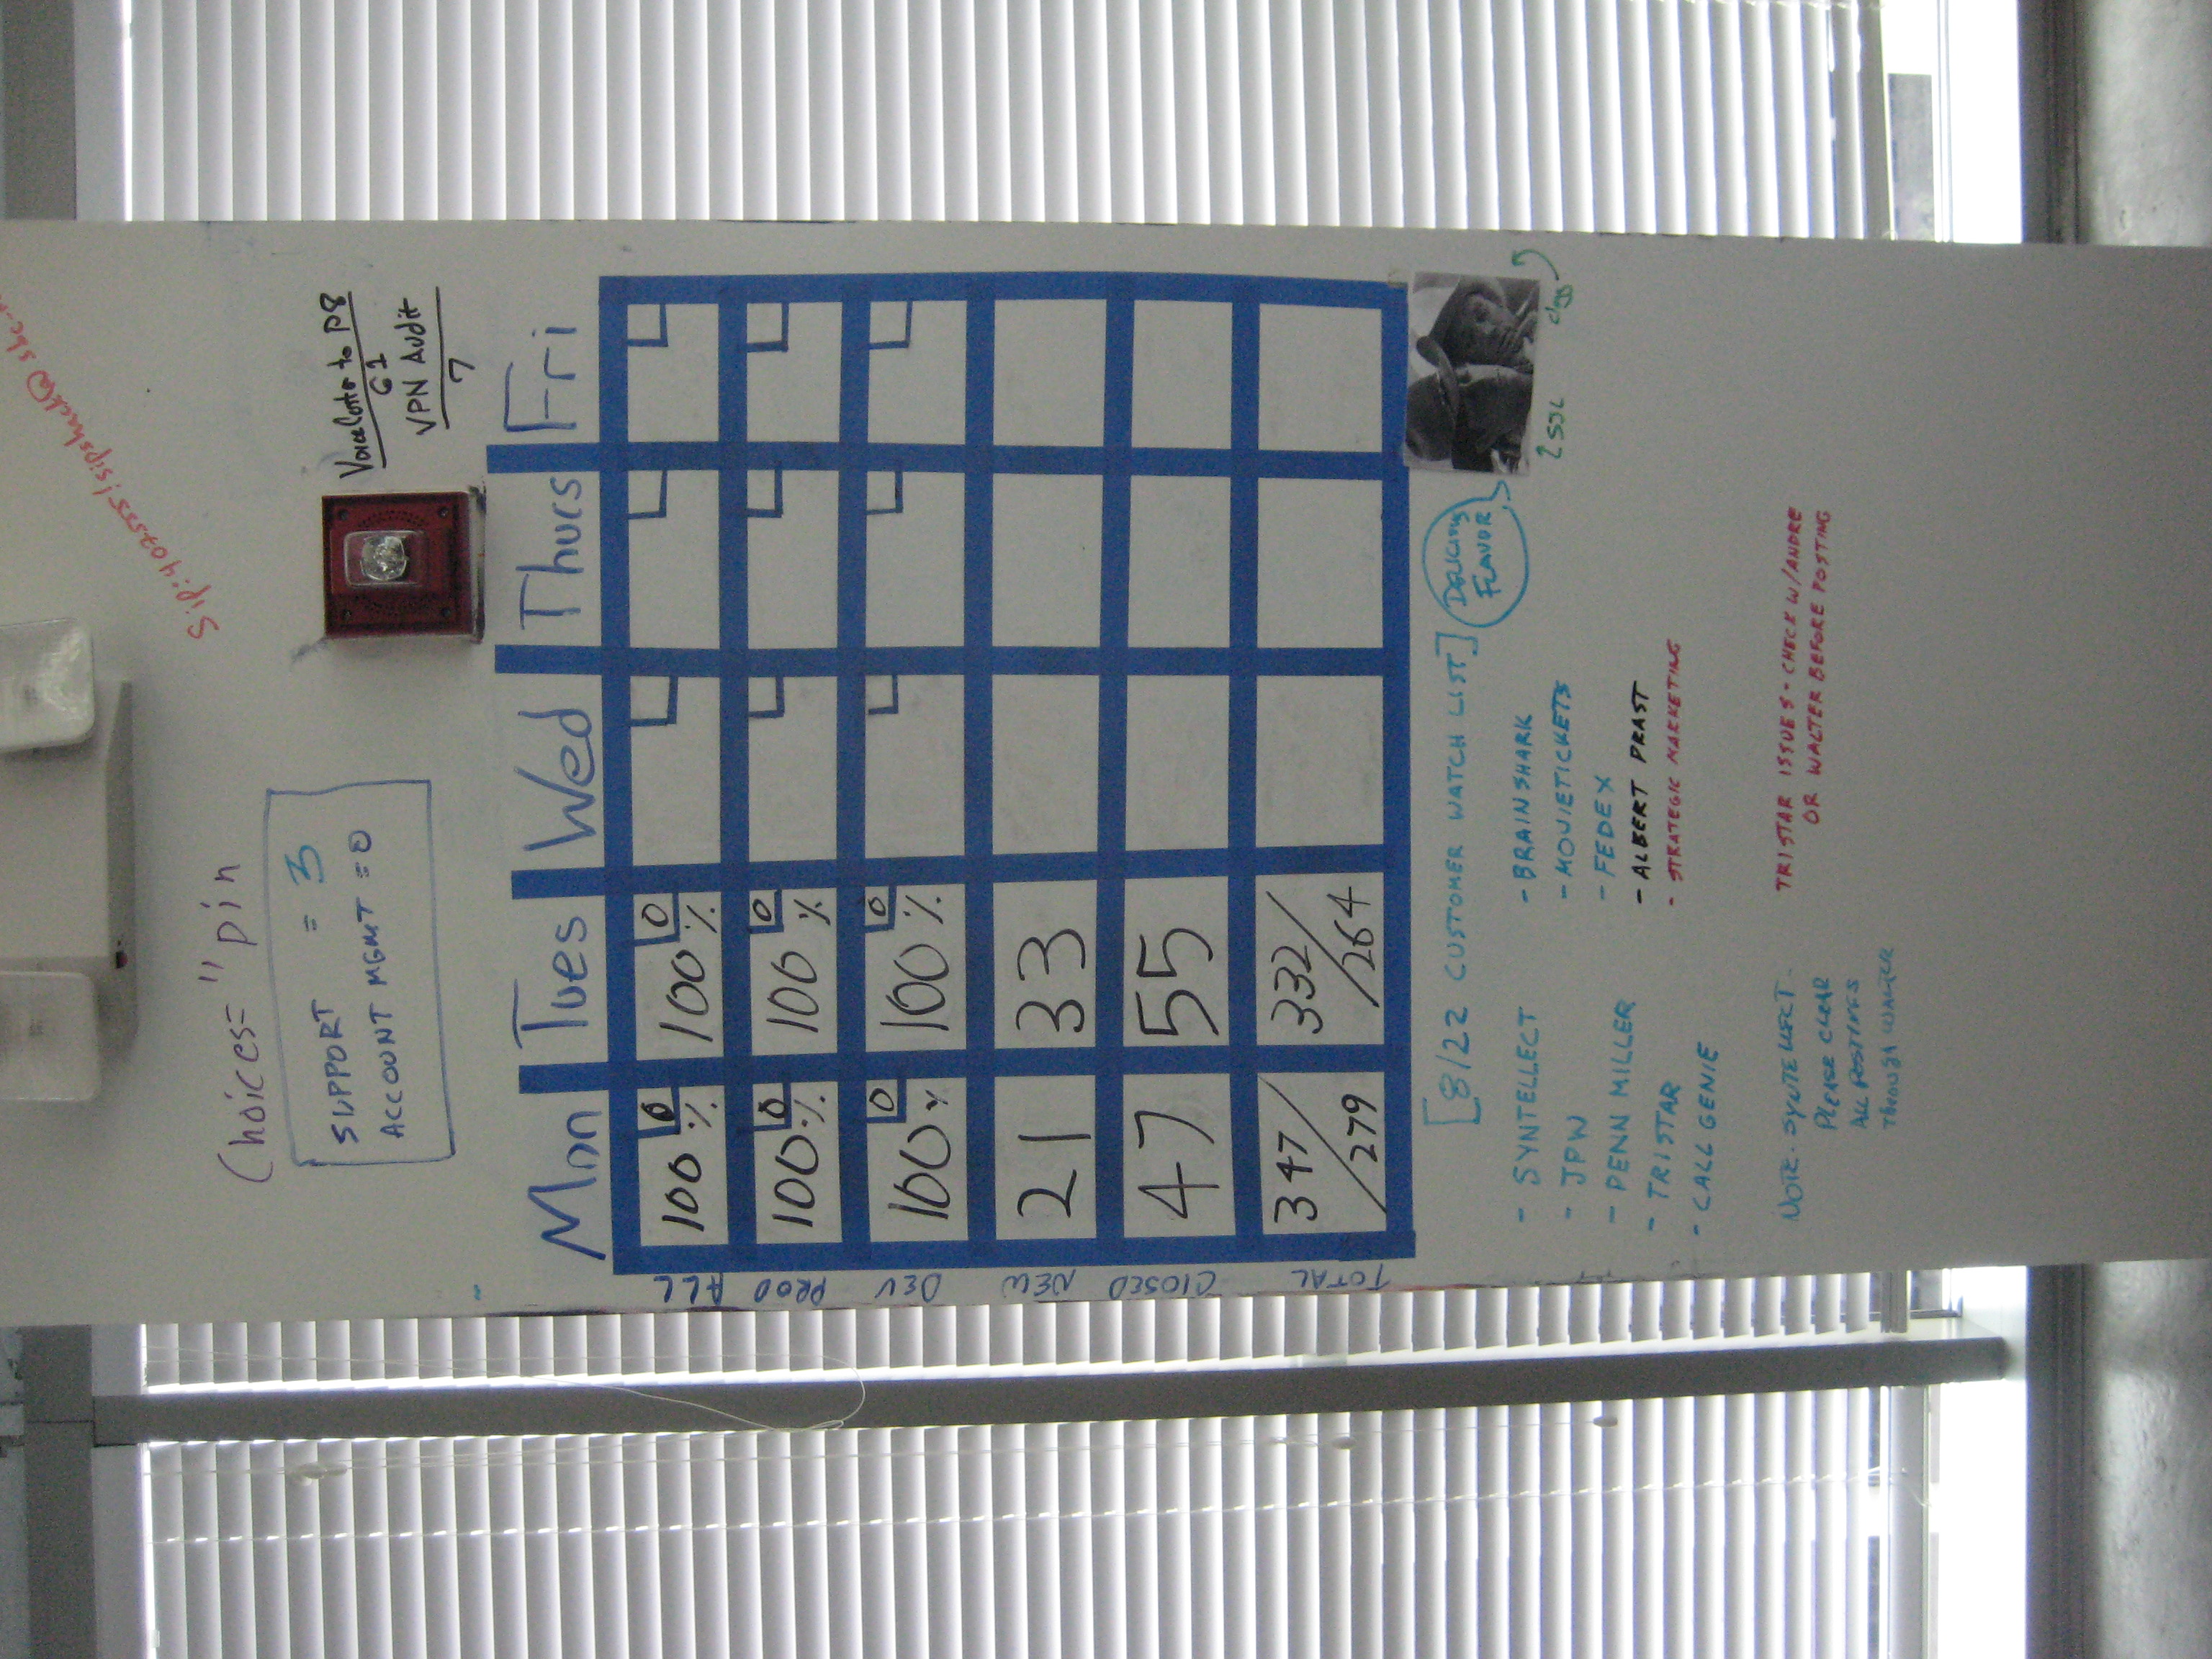 choices="pin
SUPPORT = 3
ACCOUNT MGMT = 0
to P8
61
VPN Audit
7
Mon Tues Wed Thurs Fri
ALL 100% 0 100% 0
PROD 100% 0 100% 0
DEV 100% 0 100% 0
NEW 21 33
CLOSED 47 55
TOTAL 347/279 332/264
[8/22 CUSTOMER WATCH LIST]
FLAVOR
- SYNTELLECT
- JPW
- PENN MILLER
- TRISTAR
- CALL GENIE
- BRAINSHARK
- MOVIETICKETS
- FEDEX
- ALBERT PRAST
- STRATEGIC MARKETING
NOTE.
PLEASE CLEAR
ALL POSTINGS
TRISTAR ISSUES - CHECK W/ANDRE
OR WALTER BEFORE POSTING